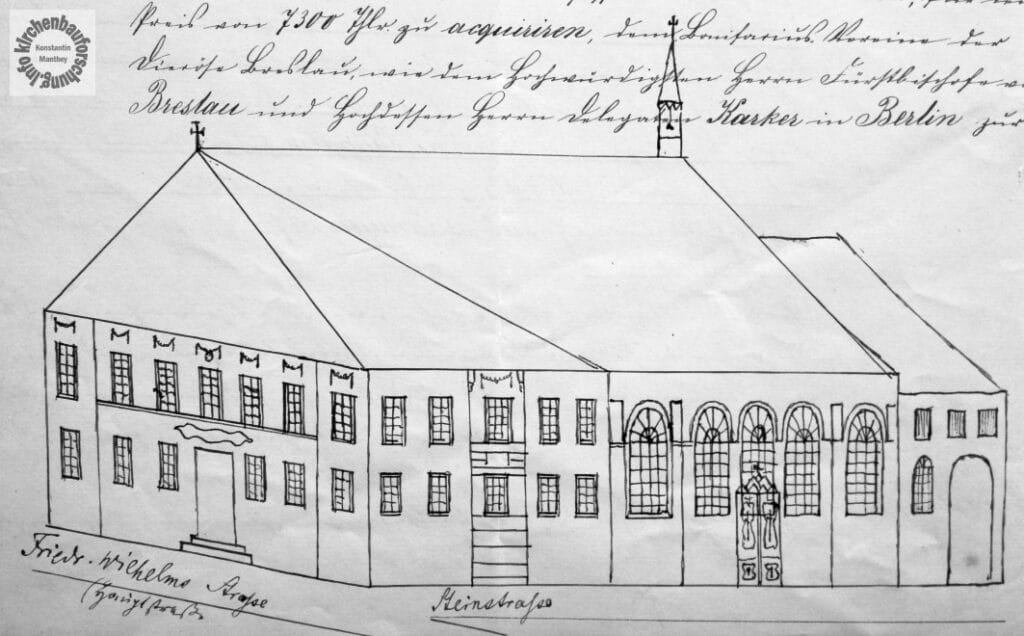 kirchenbauforschung.info
Konstantin
Manthey
Preis von 7300 Thlr. zu acquiriren, dem Bonifacius-Vereine der
Diöcöse Breslau, wie dem Hochwürdigsten Herrn Fürstbischofe
Breslau und Hochdessen Herrn Delegaten Karker in Berlin zur
Friedr. Wilhelms Straße
(Hauptstraße
Steinstraße